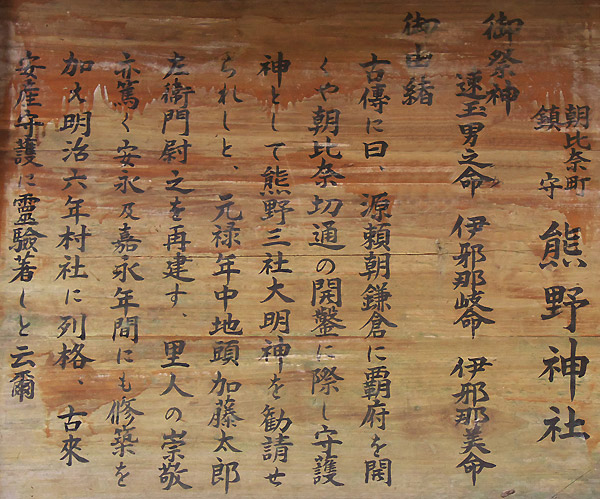 朝比奈町
鎮守
熊野神社
御祭神
速玉男之命 伊邪那岐命 伊邪那美命
御由緒
古傳に曰、源頼朝鎌倉に覇府を開
くや朝比奈切通の開鑿に際し守護
神として熊野三社大明神を勧請せ
られしと、元禄年中地頭加藤太郎
左衛門尉之を再建す、里人の崇敬
亦篤く安永及嘉永年間にも修築を
加え明治六年村社に列格、古來
安産守護に霊驗著しと云爾